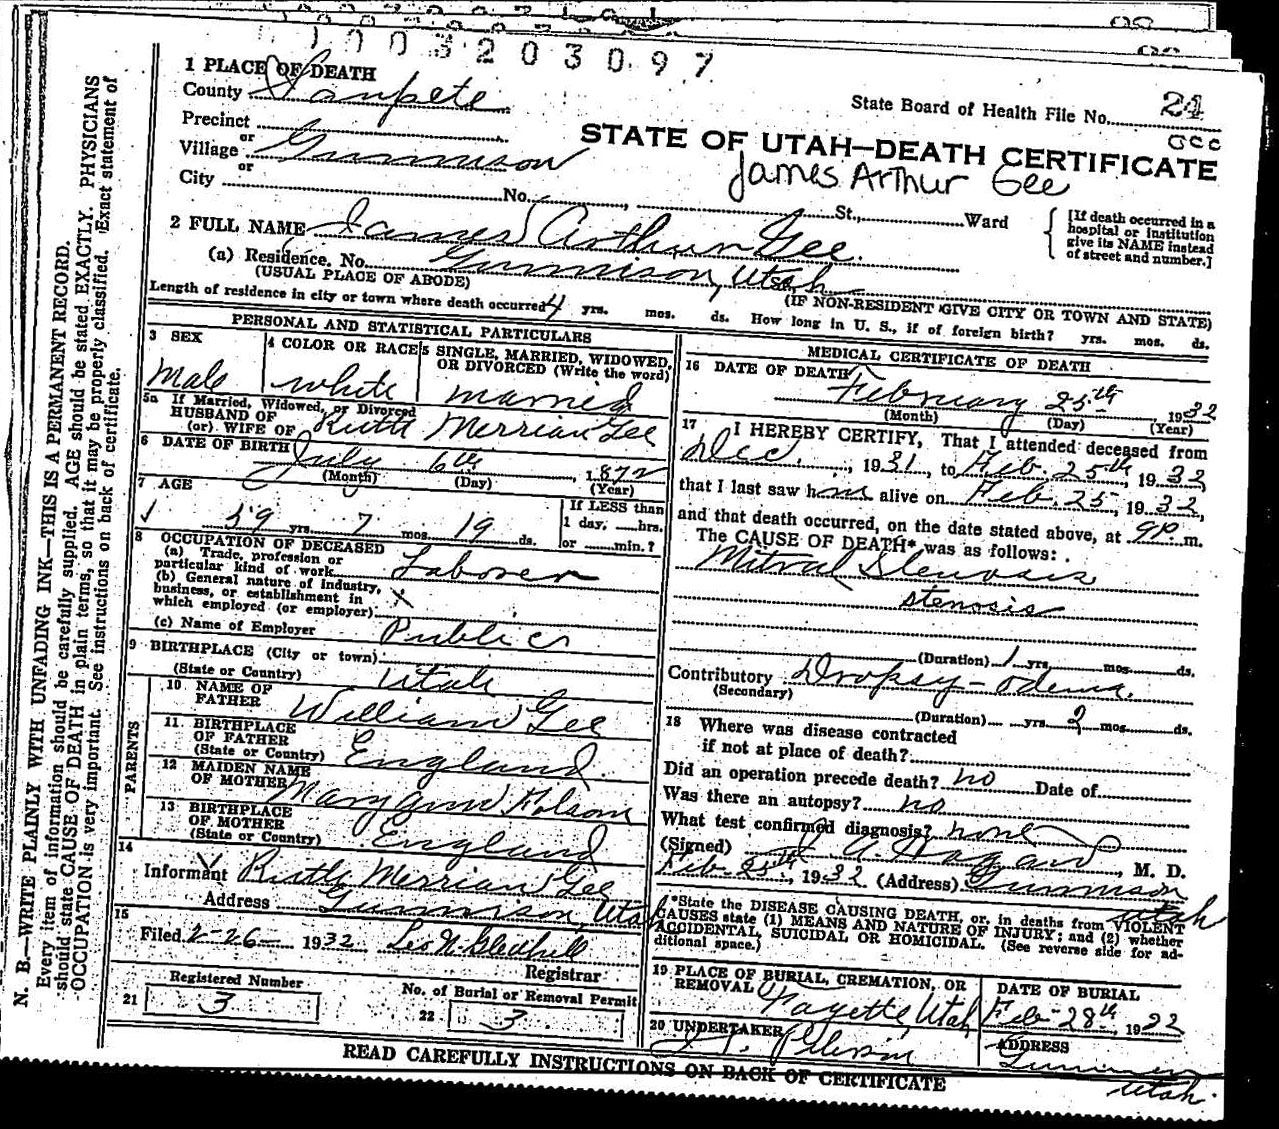 1003203097
1 PLACE OF DEATH
County Sanpete
State Board of Health File No. 24
Precinct
or
Village Gunnison
or
City
STATE OF UTAH—DEATH CERTIFICATE
James Arthur Gee
No. , St., Ward
[If death occurred in a hospital or institution give its NAME instead of street and number.]
2 FULL NAME James Arthur Gee.
(a) Residence. No. Gunnison, Utah
(USUAL PLACE OF ABODE)
(IF NON-RESIDENT GIVE CITY OR TOWN AND STATE)
Length of residence in city or town where death occurred 4 yrs. mos. ds. How long in U. S., if of foreign birth? yrs. mos. ds.
PERSONAL AND STATISTICAL PARTICULARS
3 SEX
Male
4 COLOR OR RACE
white
5 SINGLE, MARRIED, WIDOWED, OR DIVORCED (Write the word)
married
5a If Married, Widowed, or Divorced
HUSBAND OF
(or) WIFE OF Ruth Merriam Gee
6 DATE OF BIRTH July 6th, 1872
(Month) (Day) (Year)
7 AGE
59 yrs. 7 mos. 19 ds.
If LESS than
1 day, hrs.
or min.?
8 OCCUPATION OF DECEASED
(a) Trade, profession or
particular kind of work Laborer
(b) General nature of Industry,
business, or establishment in
which employed (or employer) X
(c) Name of Employer Public
9 BIRTHPLACE (City or town)
(State or Country) Utah
PARENTS
10 NAME OF
FATHER William Gee
11 BIRTHPLACE
OF FATHER
(State or Country) England.
12 MAIDEN NAME
OF MOTHER Mary Ann Folsom
13 BIRTHPLACE
OF MOTHER
(State or Country) England
14
Informant Ruth Merriam Gee
Address Gunnison, Utah
15
Filed 2-26- 1932 Leo N. Gledhill
Registrar
Registered Number
21 3
No. of Burial or Removal Permit
22 3
MEDICAL CERTIFICATE OF DEATH
16 DATE OF DEATH
February 25th, 1932
(Month) (Day) (Year)
17 I HEREBY CERTIFY, That I attended deceased from
Dec. , 1931, to Feb. 25th, 1932,
that I last saw him alive on Feb. 25, 1932,
and that death occurred, on the date stated above, at 9P. m.
The CAUSE OF DEATH* was as follows:
Mitral Stenosis
stenosis
(Duration) 1 yrs. mos. ds.
Contributory Dropsy-odema.
(Secondary)
(Duration) yrs. 2 mos. ds.
18 Where was disease contracted
if not at place of death?
Did an operation precede death? no Date of
Was there an autopsy? no
What test confirmed diagnosis? none
(Signed) A. Hagan, M. D.
Feb 25th, 1932 (Address) Gunnison
Utah
*State the DISEASE CAUSING DEATH, or, in deaths from VIOLENT
CAUSES state (1) MEANS AND NATURE OF INJURY; and (2) whether
ACCIDENTAL, SUICIDAL OR HOMICIDAL. (See reverse side for ad-
ditional space.)
19 PLACE OF BURIAL, CREMATION, OR
REMOVAL Fayette, Utah
DATE OF BURIAL
Feb-28th, 1932
20 UNDERTAKER
ADDRESS
Gunnison
Utah.
READ CAREFULLY INSTRUCTIONS ON BACK OF CERTIFICATE
N. B.—WRITE PLAINLY WITH UNFADING INK—THIS IS A PERMANENT RECORD.
Every item of information should be carefully supplied. AGE should be stated EXACTLY. PHYSICIANS
should state CAUSE OF DEATH in plain terms, so that it may be properly classified. Exact statement of
OCCUPATION is very important. See instructions on back of certificate.